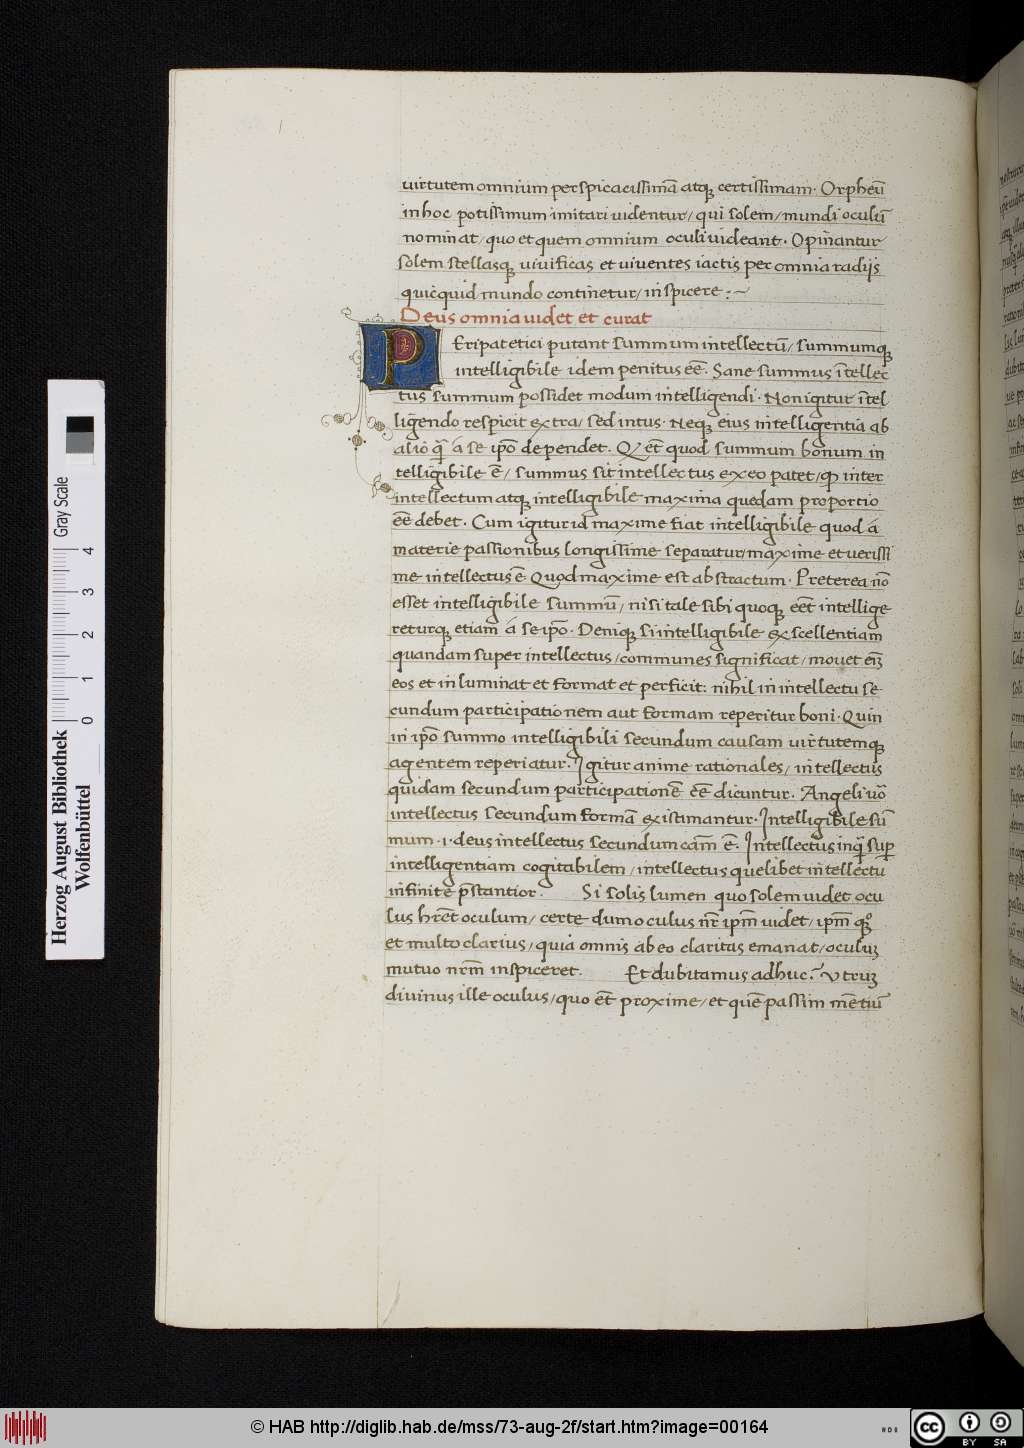 uirtutem omnium perspicacissimā atqꝫ certissimam. Orpheū
in hoc potissimum imitari uidentur/ qui solem/ mundi oculū
nominat/ quo et quem omnium oculi uideant. Opinantur
solem stellasqꝫ uiuificas et uiuentes iactis per omnia radijs
quicquid mundo continetur/ inspicere :~
Deus omnia uidet et curat
PEripatetici putant summum intellectū/ summumqꝫ
intelligibile idem penitus eē̄. Sane summus ītellec
tus summum possidet modum intelligendi. Non igitur ītel
ligendo respicit extra/ sed intus. Neqꝫ eius intelligentia ab
alio q̄ a se ipō dependet. Q̊ et̄ quod summum bonum in
telligibile ē/ summus sit intellectus ex eo patet/ ꝙ inter
intellectum atqꝫ intelligibile maxima quedam proportio
eē̄ debet. Cum igitur id maxime fiat intelligibile quod á
materie passionibus longissime separatur/ maxime et uerissi
me intellectus ē Quod maxime est abstractum. Preterea nō
esset intelligibile summū/ nisi tale sibi quoqꝫ eēt intellige
returqꝫ etiam á se ipō. Deniqꝫ si intelligibile excellentiam
quandam super intellectus/ communes significat/ mouet eīꝫ
eos et inluminat et format et perficit: nihil in intellectu se
cundum participationem aut formam reperitur boni. Quin
in ipō summo intelligibili secundum causam uirtutemqꝫ
agentem reperiatur. Igitur anime rationales/ intellectus
quidam secundum participationē eē̄ dicuntur. Angeli uō
intellectus secundum formā existimantur. Intelligibile sū
mum .i. deus intellectus secundum cām ē. Intellectus inq̄ sup̄
intelligentiam cogitabilem/ intellectus quelibet intellectu
infinite p̄stantior. Si solis lumen quo solem uidet ocu
lus hr̄et oculum/ certe dum oculus nr̄ ipm̄ uidet/ ipm̄ qꝫ
et multo clarius/ quia omnis ab eo claritas emanat/ oculuꝫ
mutuo nr̄m inspiceret. Et dubitamus adhuc? Utruꝫ
diuinus ille oculus/ quo et̄ proxime/ et quē passim mētiū
Herzog August Bibliothek
Wolfenbüttel
0 1 2 3 4
Gray Scale
© HAB http://diglib.hab.de/mss/73-aug-2f/start.htm?image=00164
cc BY SA